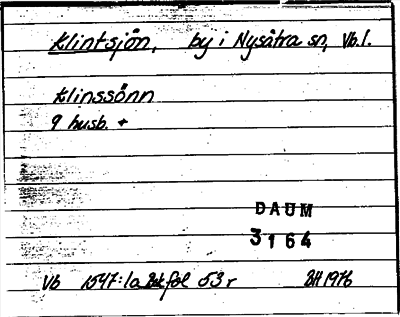 Klintsjön, by i Nysätra sn, Vb.l.
Klinssönn
9 husb. +
DAUM
3164
Vb 1547:1a Bk fol 53r BH 1976